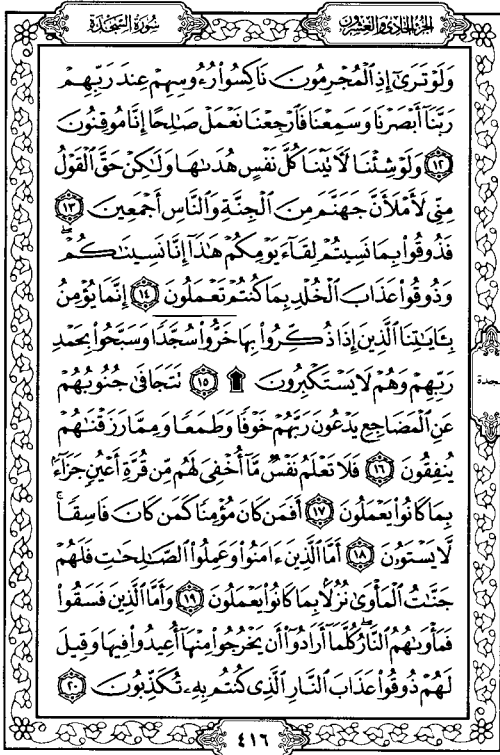 سُورَةُ السَّجْدَةِ
الجُزْءُ الحَادِي وَالعِشْرُونَ
وَلَوْ تَرَىٰٓ إِذِ ٱلْمُجْرِمُونَ نَاكِسُوا۟ رُءُوسِهِمْ عِندَ رَبِّهِمْ
رَبَّنَآ أَبْصَرْنَا وَسَمِعْنَا فَٱرْجِعْنَا نَعْمَلْ صَـٰلِحًا إِنَّا مُوقِنُونَ
١٢ وَلَوْ شِئْنَا لَـَٔاتَيْنَا كُلَّ نَفْسٍ هُدَىٰهَا وَلَـٰكِنْ حَقَّ ٱلْقَوْلُ
مِنِّى لَأَمْلَأَنَّ جَهَنَّمَ مِنَ ٱلْجِنَّةِ وَٱلنَّاسِ أَجْمَعِينَ ١٣
فَذُوقُوا۟ بِمَا نَسِيتُمْ لِقَآءَ يَوْمِكُمْ هَـٰذَآ إِنَّا نَسِينَـٰكُمْ ۖ
وَذُوقُوا۟ عَذَابَ ٱلْخُلْدِ بِمَا كُنتُمْ تَعْمَلُونَ ١٤ إِنَّمَا يُؤْمِنُ
بِـَٔايَـٰتِنَا ٱلَّذِينَ إِذَا ذُكِّرُوا۟ بِهَا خَرُّوا۟ سُجَّدًا وَسَبَّحُوا۟ بِحَمْدِ
رَبِّهِمْ وَهُمْ لَا يَسْتَكْبِرُونَ ۩ ١٥ تَتَجَافَىٰ جُنُوبُهُمْ
عَنِ ٱلْمَضَاجِعِ يَدْعُونَ رَبَّهُمْ خَوْفًا وَطَمَعًا وَمِمَّا رَزَقْنَـٰهُمْ
يُنفِقُونَ ١٦ فَلَا تَعْلَمُ نَفْسٌ مَّآ أُخْفِىَ لَهُم مِّن قُرَّةِ أَعْيُنٍ جَزَآءًۢ
بِمَا كَانُوا۟ يَعْمَلُونَ ١٧ أَفَمَن كَانَ مُؤْمِنًا كَمَن كَانَ فَاسِقًا ۚ
لَّا يَسْتَوُۥنَ ١٨ أَمَّا ٱلَّذِينَ ءَامَنُوا۟ وَعَمِلُوا۟ ٱلصَّـٰلِحَـٰتِ فَلَهُمْ
جَنَّـٰتُ ٱلْمَأْوَىٰ نُزُلًۢا بِمَا كَانُوا۟ يَعْمَلُونَ ١٩ وَأَمَّا ٱلَّذِينَ فَسَقُوا۟
فَمَأْوَىٰهُمُ ٱلنَّارُ ۖ كُلَّمَآ أَرَادُوٓا۟ أَن يَخْرُجُوا۟ مِنْهَآ أُعِيدُوا۟ فِيهَا وَقِيلَ
لَهُمْ ذُوقُوا۟ عَذَابَ ٱلنَّارِ ٱلَّذِى كُنتُم بِهِۦ تُكَذِّبُونَ ٢٠
٤١٦